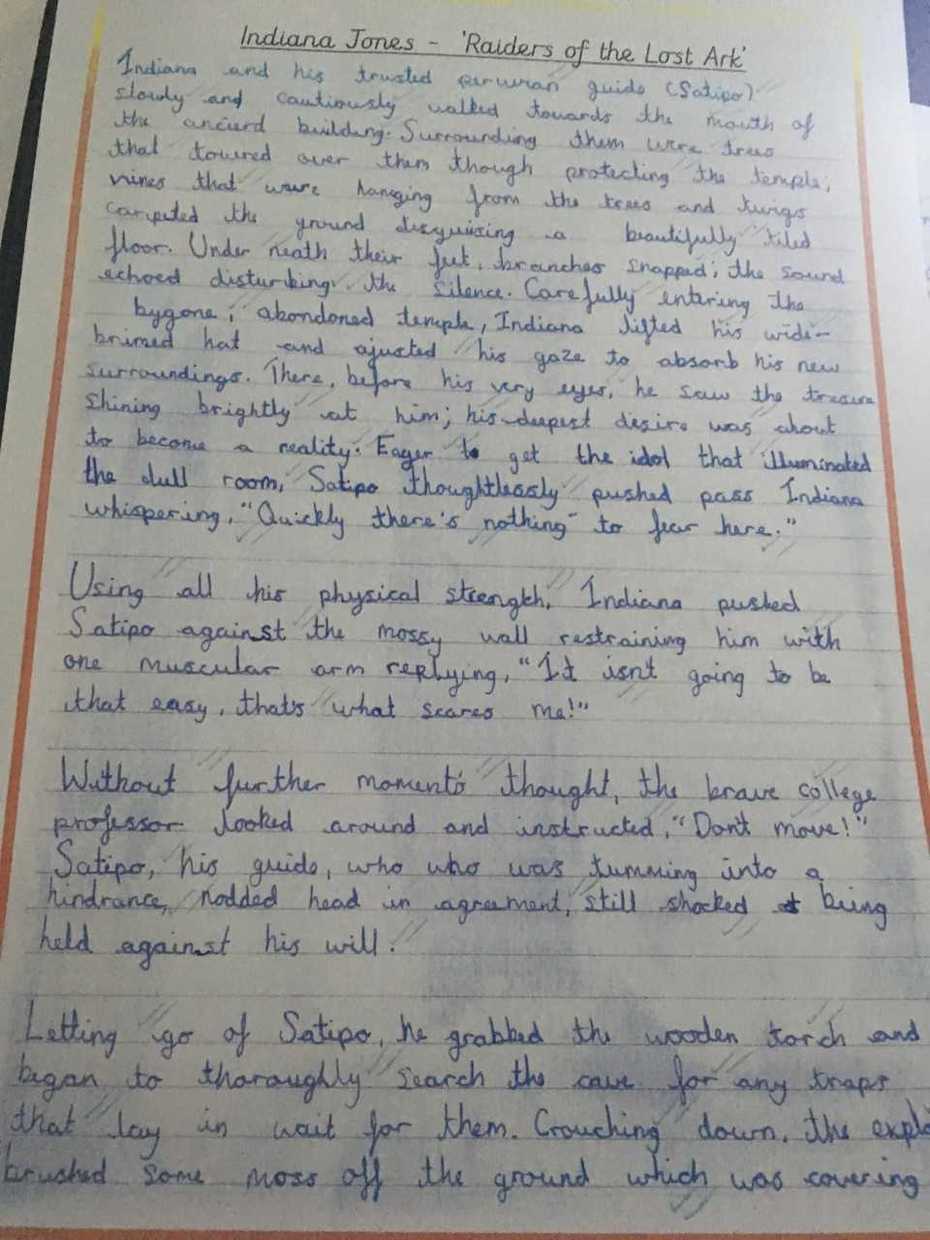 Indiana Jones - 'Raiders of the Lost Ark'
Indiana and his trusted peruvian guide (Satipo)
slowly and cautiously walked towards the mouth of
the anciend building. Surrounding them were trees
that towred over them though protecting the temple;
vines that were hanging from the trees and twigs
carpeted the ground disguising a beautifully tiled
floor. Under neath their feet, branches snapped; the sound
echoed disturbing the silence. Carefully entering the
bygone, abondoned temple, Indiana lifted his wide-
brimed hat and ajusted his gaze to absorb his new
surroundings. There, before his very eyes, he saw the treasure
shining brightly at him; his deepest desire was about
to become a reality. Eager to get the idol that illuminated
the dull room, Satipo thoughtlessly pushed pass Indiana
whispering, "Quickly there's nothing to fear here."
Using all his physical strength, Indiana pushed
Satipo against the mossy wall restraining him with
one muscular arm replying, "It isn't going to be
that easy, that's what scares me!"
Without further moment's thought, the brave college
professor looked around and instructed, "Don't move!"
Satipo, his guide, who who was turnning into a
hindrance, nodded head in agreement, still shocked at being
held against his will.
Letting go of Satipo, he grabbed the wooden torch and
began to thoroughly search the cave for any traps
that lay in wait for them. Crouching down, the explo
brushed some moss off the ground which was covering